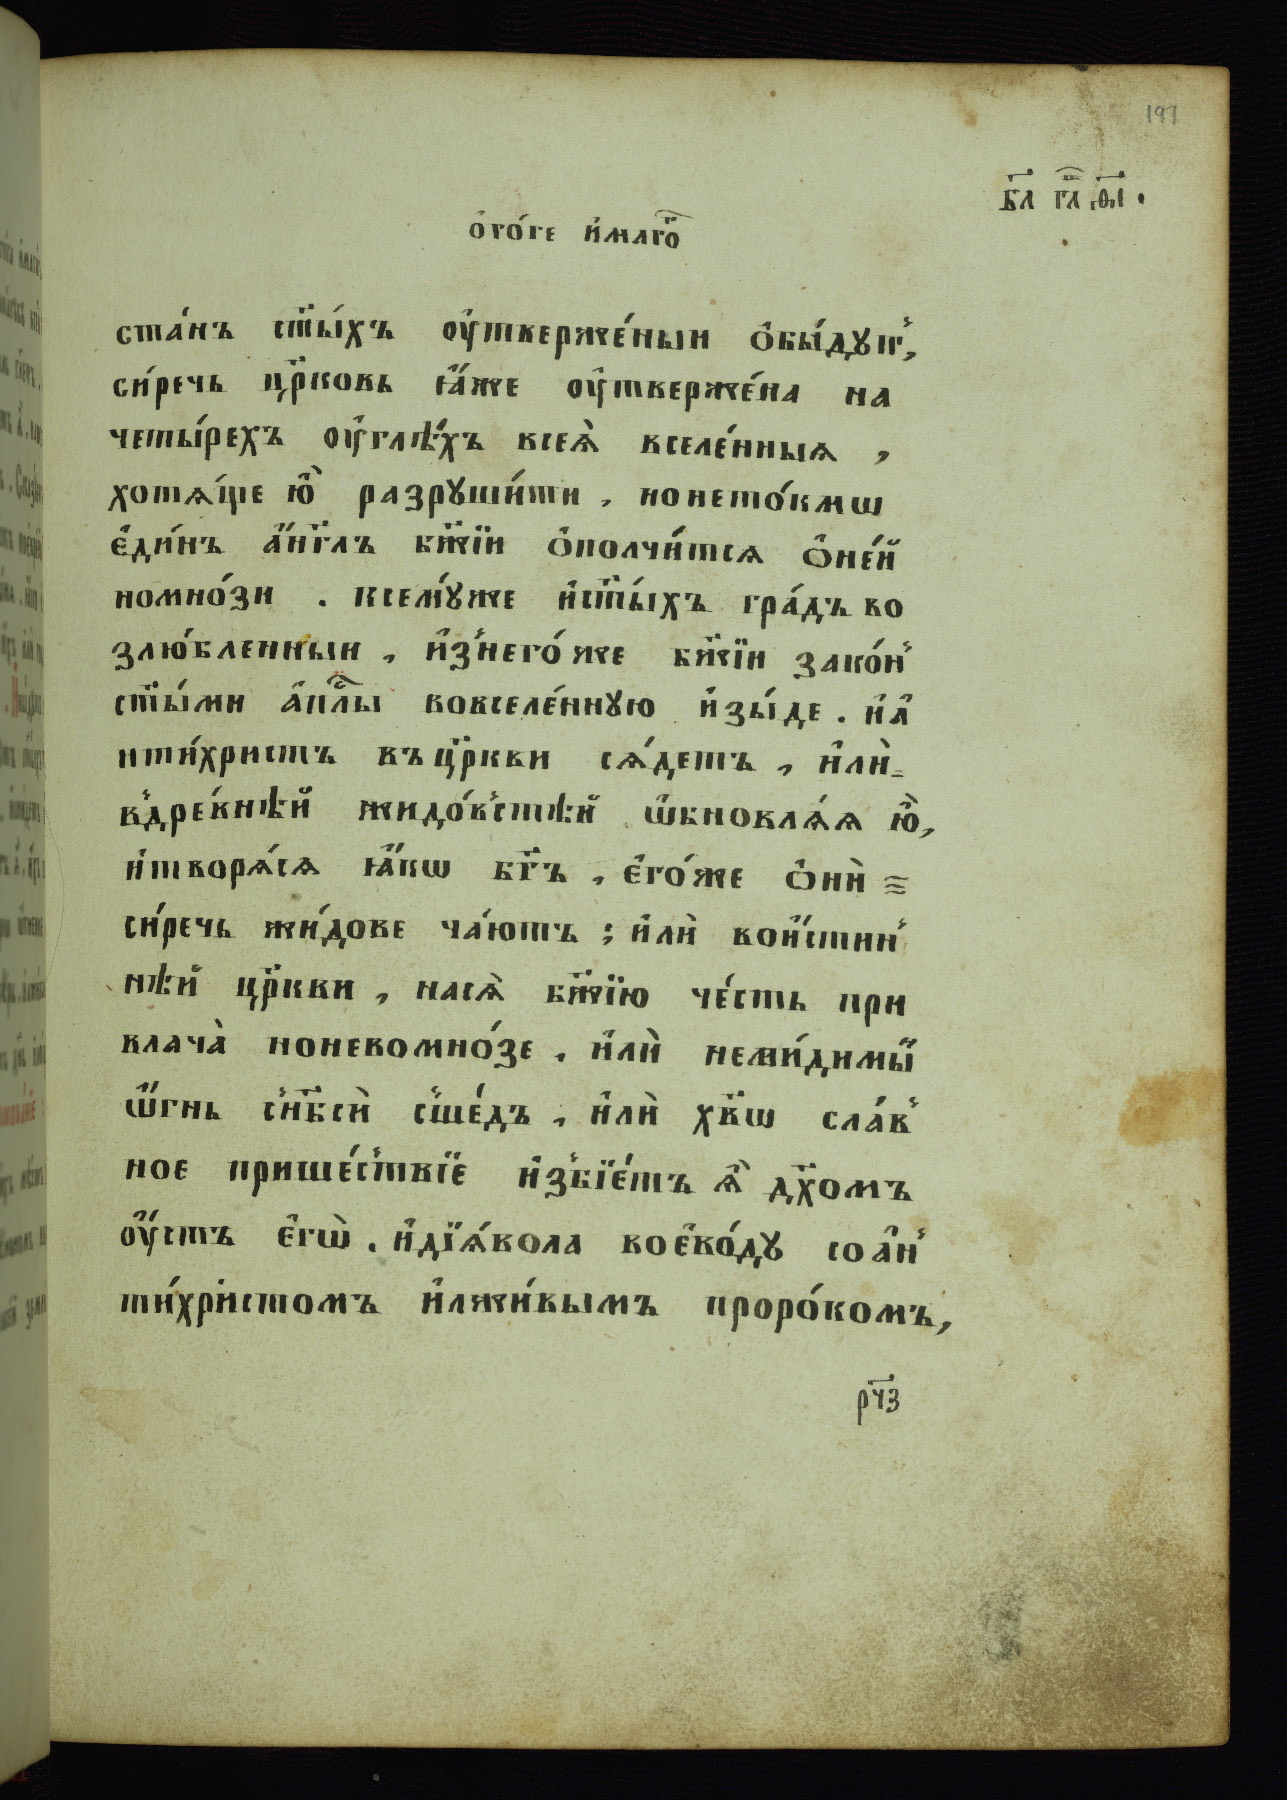 197
бл҃ гл҃ ѳ҃і .
ѻ҆го́ге и҆маго́г
ста́нъ ст҃ы́хъ ᲂу҆тверже́ныи ѻ҆бы́дꙋт̾,
си́речь цр҃ковь ꙗ҆́же ᲂу҆твержена́ на
четы́рехъ ᲂу҆глѣ́хъ всеѧ̀ вселе́нныѧ ,
хотѧ́ще ю҆̀ разрꙋши́ти . нонето́кмѡ
є҆ди́нъ а҆́нг҃лъ бж҃їи ѻ҆полчи́тсѧ ѻ҆не́й
номно́зи . всемꙋ́же и҆ст҃ы́хъ гра́дъ во
злю́бленныи , и҆з̾него́же бж҃їи зако́н̾
ст҃ы́ми а҆пⷭ҇лы вовселе́ннꙋю и҆зы́де . и҆а҆
нти́христъ въцр҃кви сѧ́детъ , и҆лѝ
в̾дре́внѣй жидо́в̾стѣй ѡ҆бновлѧ́ѧ ю҆̀,
и҆творѧ́сѧ ꙗ҆́кѡ бг҃ъ , є҆го́же ѻ҆нѝ
си́речь жи́дове ча́ютъ ; и҆лѝ вои҆́стин̾
нѣй цр҃кви , насѧ̀ бж҃їю че́сть при
влача̀ ноневомно́зе . и҆лѝ неви́димы́й
ѡ҆́гнь с̾нб҃сѝ с̾ше́дъ , и҆лѝ хв҃ѡ сла́в̾
ное прише́с̾твїе и҆з̾бїе́тъ ѧ҆̀ дх҃омъ
ᲂу҆́стъ є҆гѡ̀ . и҆дїѧ́вола вое҆во́дꙋ соа҆н̾
ти́христомъ и҆лжи́вымъ проро́комъ,
рч҃з